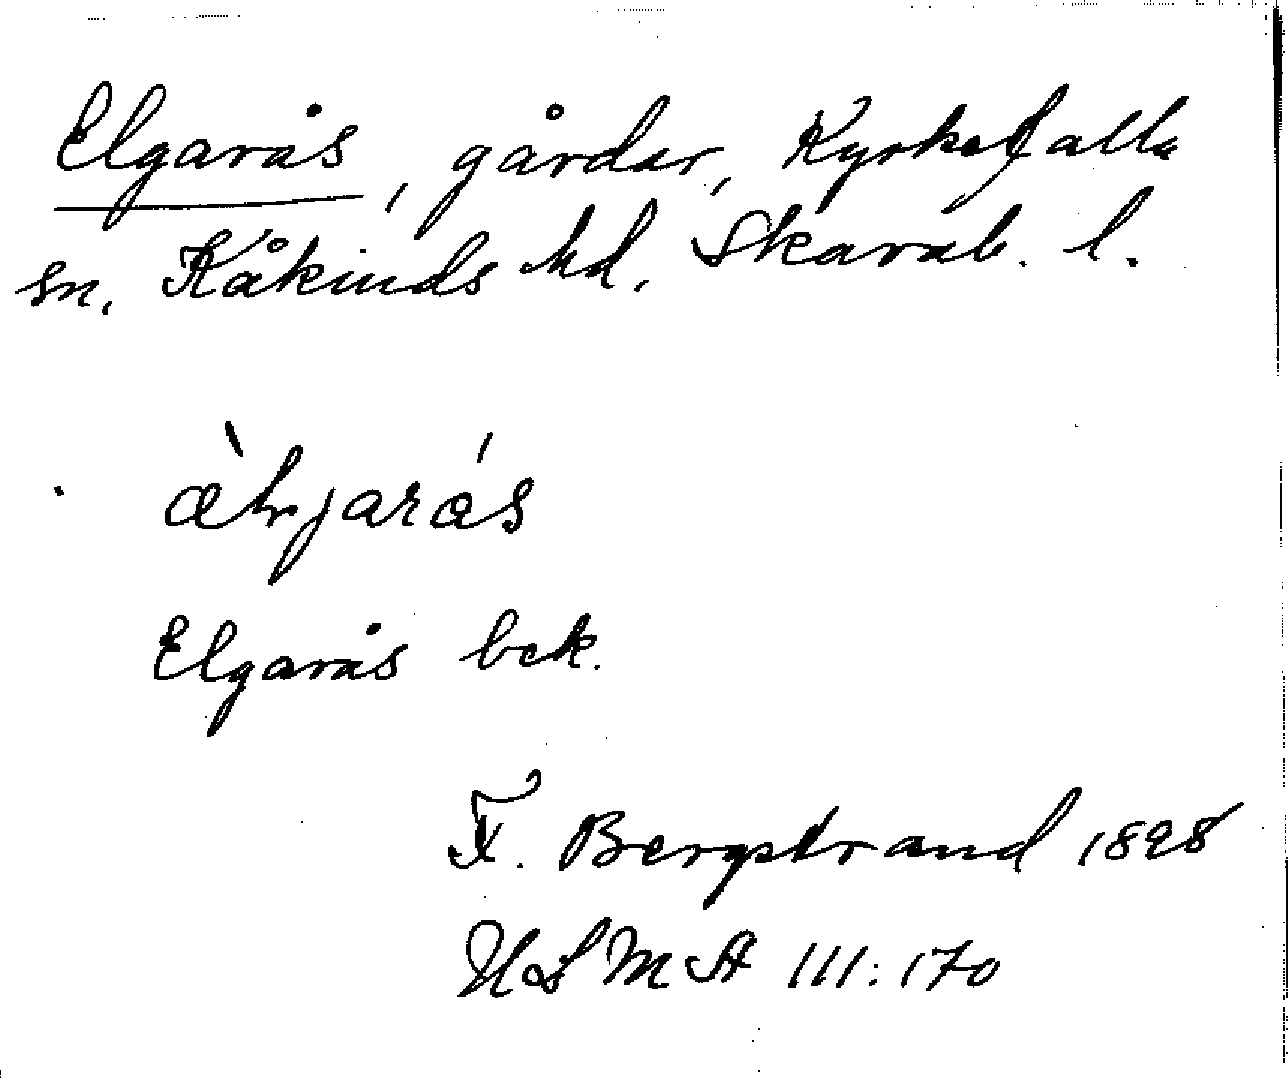 Elgarås, gårdar, Kyrkefalla
sn. Kåkinds hd. Skarab. l.
Elgarås bek.
F. Bergstrand 1898
ULMA 111:170